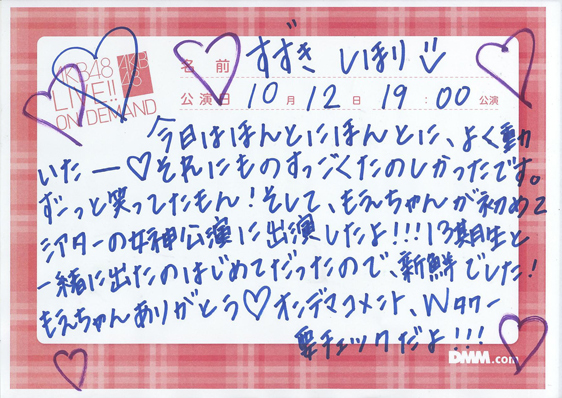 AKB48
LIVE!!
ON DEMAND
AKB
48
名前 すずき しほり
公演日 10月12日 19:00公演
今日はほんとにほんとに、よく動
いたー♡それにものすっごくたのしかったです。
ずーっと笑ってたもん!そして、もえちゃんが初めて
シアターの女神公演に出演したよ!!!13期生と
一緒に出たのはじめてだったので、新鮮でした!
もえちゃんありがとう♡オンデマコメント、Wタワー
要チェックだよ!!!
DMM.com